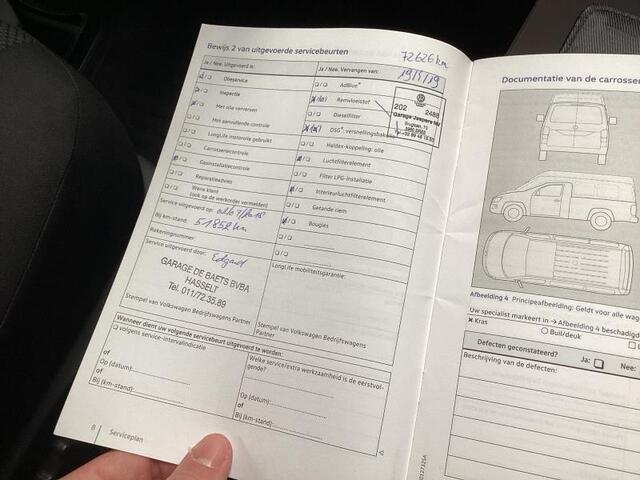 Bewijs 2 van uitgevoerde servicebeurten
72626 km
Ja / Nee: Uitgevoerd is:
Olieservice
Inspectie
Met olie verversen
Met aanvullende controle
LongLife motorolie gebruikt
Carrosseriecontrole
Gasinstallatiecontrole
Reparatieadvies
Wens klant
(ook op de werkorder vermelden)
Service uitgevoerd op:
Bij km-stand: 51852 km
Rekeningnummer:
Service uitgevoerd door: Edgard
GARAGE DE BAETS BVBA
HASSELT
Tel. 011/72.35.89
Stempel van Volkswagen Bedrijfswagens
Partner
Ja / Nee: Vervangen van: 19/5/19
AdBlue®
Remvloeistof
Dieselfilter
DSG®, versnellingsbak
Haldex-koppeling: olie
Luchtfilterelement
Filter LPG-installatie
Interieurluchtfilterelement
Getande riem
Bougies
202 2488
Garage Jaspers NV
LongLife mobiliteitsgarantie:
Stempel van Volkswagen Bedrijfswagens
Partner
Wanneer dient uw volgende servicebeurt uitgevoerd te worden:
volgens service-intervalindicatie
of
Op (datum):
of
Bij (km-stand):
Welke service/extra werkzaamheid is de eerstvol-
gende?
Op (datum):
of
Bij (km-stand):
8 Serviceplan
Documentatie van de carrosser
Afbeelding 4 Principeafbeelding: Geldt voor alle wag
Uw specialist markeert in → Afbeelding 4 beschadig
Kras
Buil/deuk
Defecten geconstateerd? Ja: Nee:
Beschrijving van de defecten: